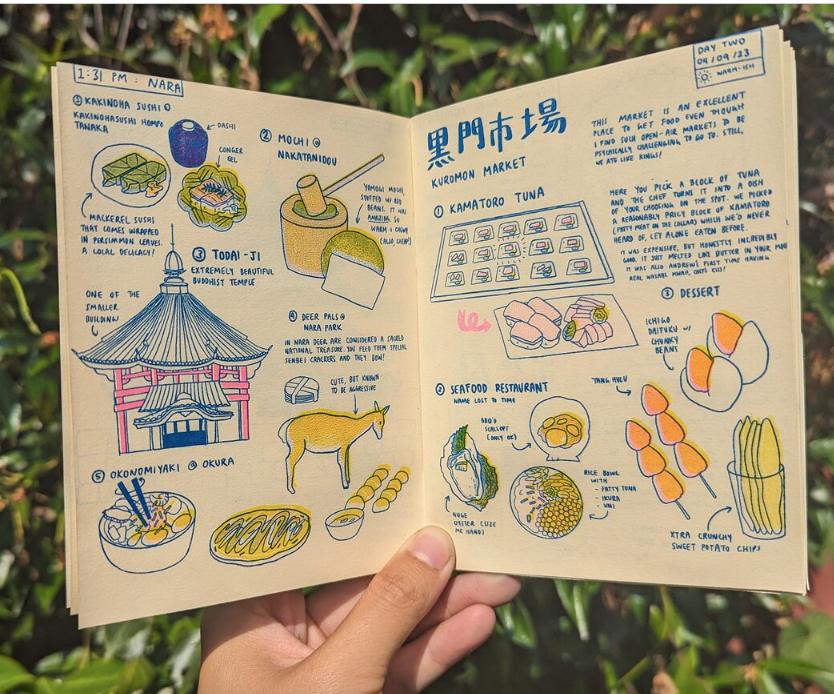 1:31 PM : NARA
① KAKINOHA SUSHI @
KAKINOHASUSHI HOMPO
TANAKA
DASHI
CONGER
EEL
MACKEREL SUSHI
THAT COMES WRAPPED
IN PERSIMMON LEAVES.
A LOCAL DELICACY!
② MOCHI @
NAKATANIDOU
YOMOGI MOCHI
STUFFED W/ RED
BEANS. IT WAS
AMAZING. SO
WARM & CHEWY
(ALSO CHEAP)
③ TODAI-JI
EXTREMELY BEAUTIFUL
BUDDHIST TEMPLE
ONE OF THE
SMALLER
BUILDINGS
④ DEER PALS @
NARA PARK
IN NARA DEER ARE CONSIDERED A SACRED
NATIONAL TREASURE. YOU FEED THEM SPECIAL
SENBEI CRACKERS AND THEY BOW!
CUTE, BUT KNOWN
TO BE AGGRESSIVE
⑤ OKONOMIYAKI @ OKURA
DAY TWO
04/09/23
WARM-ISH
黒門市場
KUROMON MARKET
THIS MARKET IS AN EXCELLENT
PLACE TO GET FOOD EVEN THOUGH
I FIND SUCH OPEN-AIR MARKETS TO BE
PSYCHICALLY CHALLENGING TO GO TO. STILL,
WE ATE LIKE KINGS!
① KAMATORO TUNA
HERE YOU PICK A BLOCK OF TUNA
AND THE CHEF TURNS IT INTO A DISH
OF YOUR CHOOSING ON THE SPOT. WE PICKED
A REASONABLY PRICY BLOCK OF KAMATORO
(FATTY MEAT ON THE COLLAR) WHICH WE'D NEVER
HEARD OF, LET ALONE EATEN BEFORE.
IT WAS EXPENSIVE, BUT HONESTLY INCREDIBLY
GOOD. IT JUST MELTED LIKE BUTTER IN YOUR MOUTH
IT WAS ALSO ANDREW'S FIRST TIME HAVING
REAL WASABI. MWAH, CHEFS KISS!
② SEAFOOD RESTAURANT
NAME LOST TO TIME
BBQ'D
SCALLOPS
(ONLY OK)
HUGE
OYSTER (SIZE
OF HAND)
RICE BOWL
WITH
- FATTY TUNA
- IKURA
- UNI
③ DESSERT
ICHIGO
DAIFUKU W/
CHUNKY
BEANS
TANGHULU
XTRA CRUNCHY
SWEET POTATO CHIPS